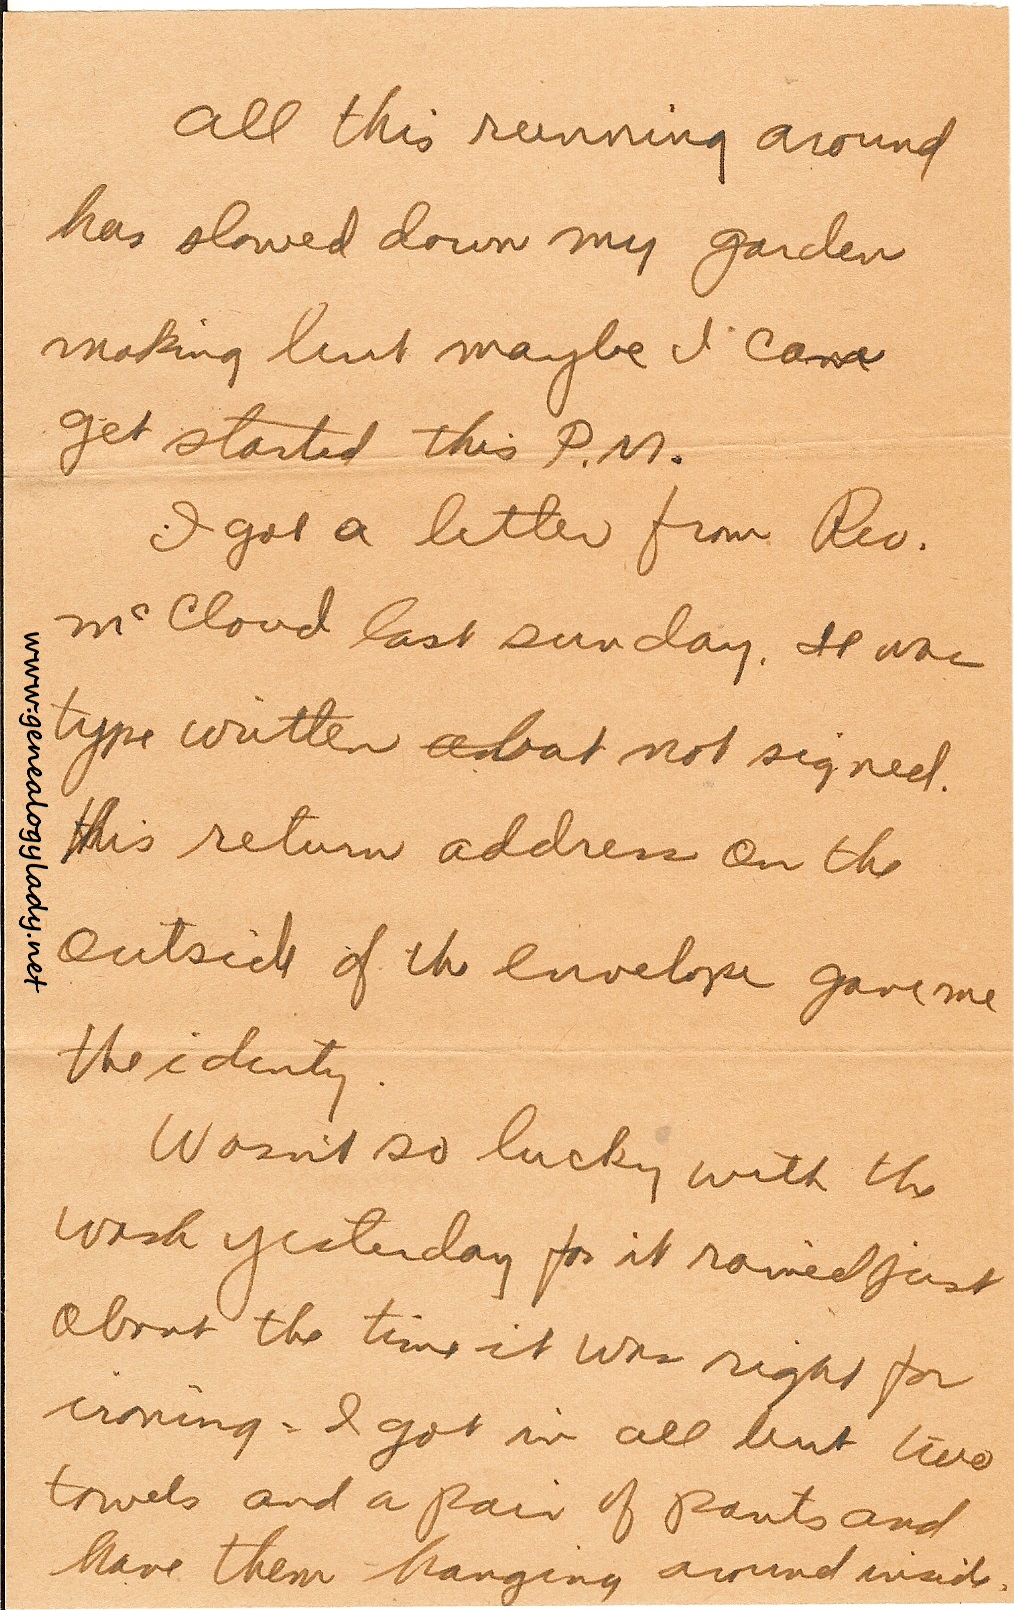 all this running around
has slowed down my garden
making but maybe I can
get started this P.M.
I got a letter from Rev.
McCloud last sunday. It was
type written but not signed.
This return address on the
outside of the envelope gave me
the identy.
Wasn't so lucky with the
wash yesterday for it rained just
about the time it was right for
ironing - I got in all but two
towels and a pair of pants and
have them hanging around inside.
www.genealogylady.net